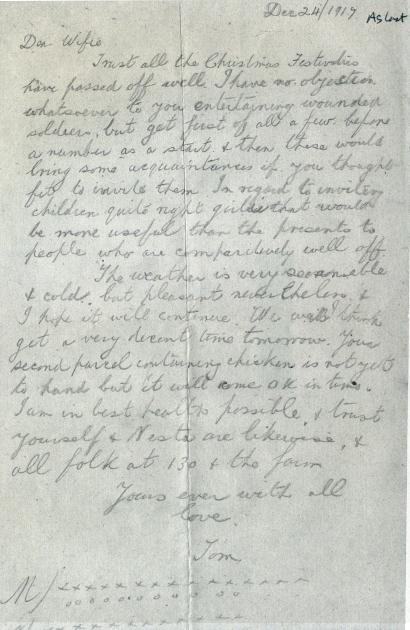 Dec 24/1917 As Last
Dear Wifie
Trust all the Christmas Festivities
have passed off well. I have no objection
whatsoever to you entertaining wounded
soldiers, but get first of all a few before
a number as a start & then these would
bring some acquaintances if you thought
fit to invite them. In regard to inviting
children quite right that would
be more useful than the presents to
people who are comparatively well off.
The weather is very seasonable
& cold, but pleasant nevertheless, &
I hope it will continue. We will
get a very decent time tomorrow. Your
second parcel containing chicken is not yet
to hand but it will come OK in time.
I am in best health possible, & trust
yourself & Nesta are likewise, &
all folk at 130 & the farm
Yours ever with all
love.
Tom